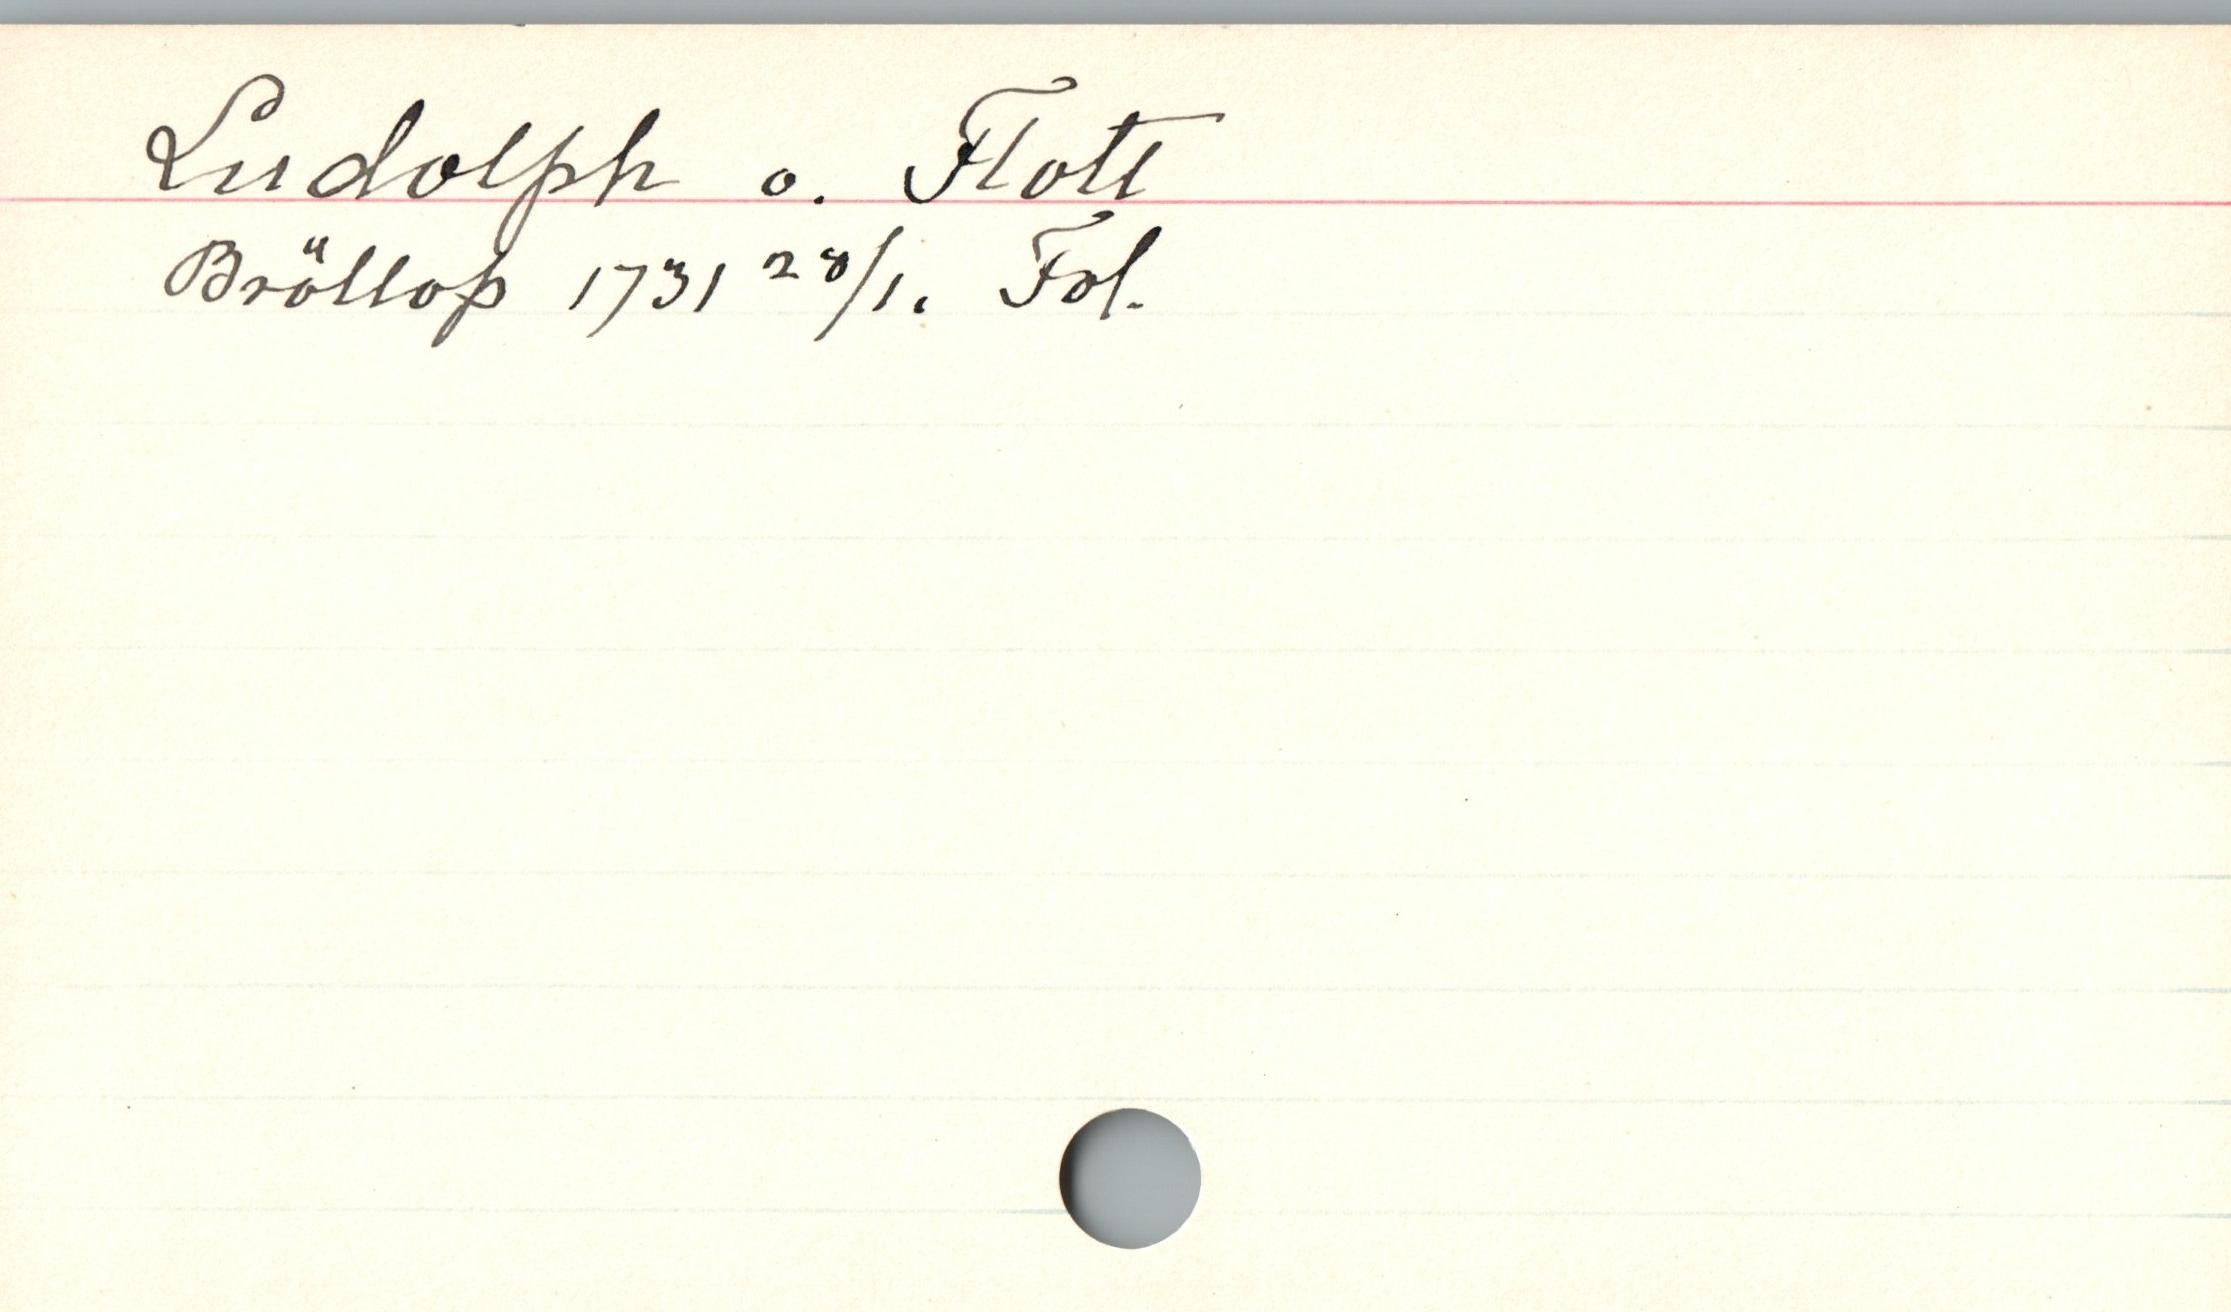 Ludolph o. Flott
Bröllop 1731 28/1. Fol.